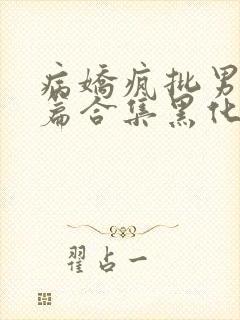 病嬌疯批男
篇合集黑化
翟占一